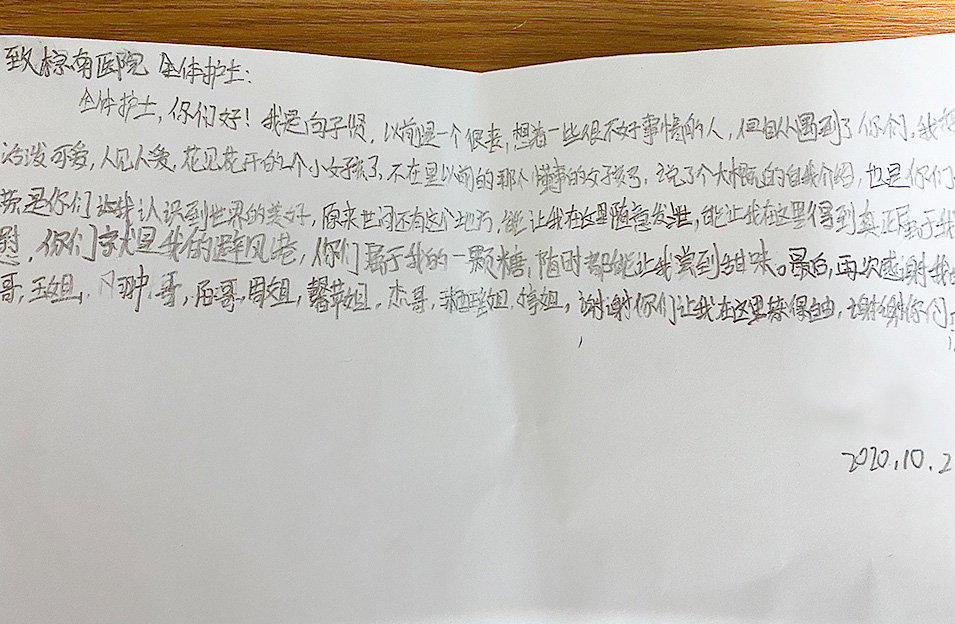 致棕南医院 全体护士：
全体护士，你们好！我是向子贤，以前是一个很丧，想着一些很不好事情的人，但自从遇到了你们，我
活泼可爱，人见人爱，花见花开的一个小女孩了，不在是以前的那个懂事的女孩了，说了个大概的自我介绍，也是你们
是你们让我认识到世界的美好，原来世间还有这个地方，能让我在这里随意发泄，能让我在这里得到真正属于我
慰，你们就是我的避风港，你们属于我的一颗糖，随时都能让我尝到甜味。最后，再次感谢我
哥，王姐，哥，阳哥，周姐，馨苹姐，杰哥，姐，婷姐，谢谢你们让我在这里获得自由，谢谢你们
2020.10.2